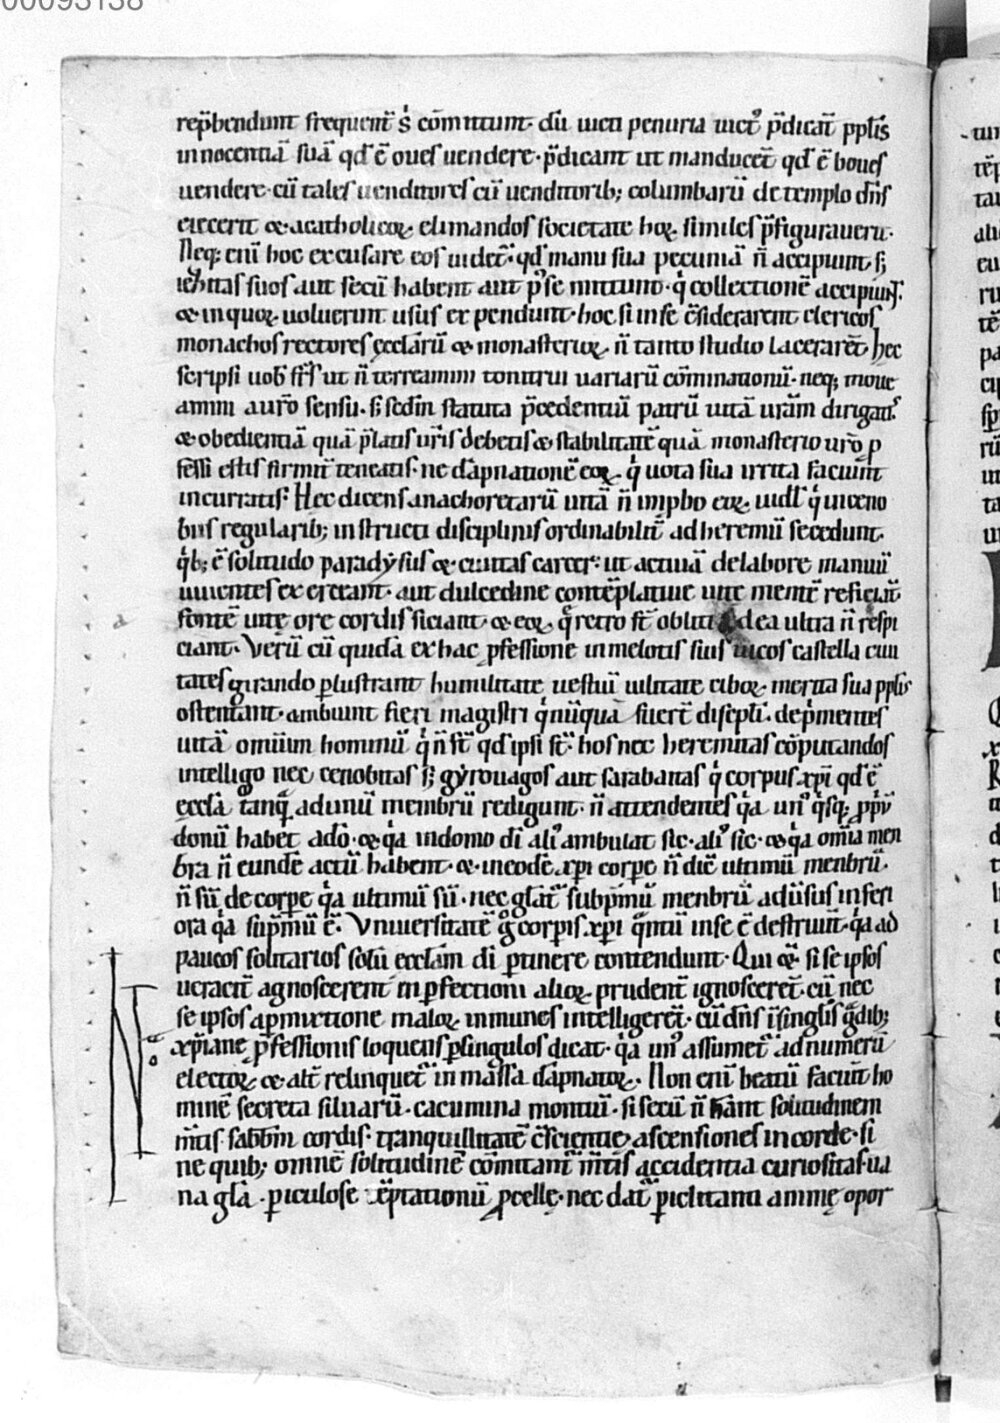 00093138
rep̄hendunt frequent̄ s; cōmittunt· dū uicti penuria uict᷒ p̄dicāt pplīs
innocentiā suā qd̓ ē oues uendere· p̄dicant ut manducēt qd̓ ē boues
uendere· cū tales uenditores cū uenditorib; columbarū de templo dn̄s
eiecerit & a catholicoꝝ elimandos societate hoꝝ similes p̄figurauerit·
Neq; enī hoc excusare eos uidet᷒· qd̓ manu sua pecuniā n̄ accipiunt s;
aut secū habent aut p̓ se mittunt· q̓ collectionē accipiunt·
& in quoꝝ uoluerint usus expendunt· hoc si in se c̄siderarent clericos
monachos rectores ęcclarū & monasterioꝝ· n̄ tanto studio lacerarēt· hec
scripsi uob̄ fr̄s ut n̄ terreamini tonitrui uariarū cōminationū· neq; moue
amini a ur̄o sensu· s; sedm̄ statuta p̄cedentiū patrū uitā ur̄am dirigatis
& obedientiā quā p̄latis ur̄is debetis & stabilitatē quā monasterio ur̄o ꝓ
fessi estis firmit̄ teneatis· ne dāpnationē eoꝝ q̓ uota sua irrita faciunt
incurratis· Hec dicens anachoretarū uitā n̄ improbo eoꝝ uidl̄ q̓ in ceno
biis regularib; instructi disciplinis ordinabilit̄ ad heremū secedunt·
q̓b; ē solitudo paradẏsus & ciuitas carcer· ut actiuā de labore manuū
uiuentes exerceant· aut dulcedine contēplatiue uite mentē reficiant
fontē uite ore cordis siciant· & eoꝝ q̨ retro st̄ obliti ad ea ultra n̄ respi
ciant· Verū cū quidā ex hac ꝓfessione in melotis suis uicos castella ciui
tates girando ꝑlustrant humilitate uestiū uilitate ciboꝝ merita sua pplīs
ostentant· ambiunt fieri magistri q̓ nūquā fuert̄ discipl̄i· dep̄mentes
uitā omnium hominū q̓ n̄ st̄ qd̓ ipsi st̄· hos nec heremitas cōputandos
intelligo nec cenobitas s; gẏrouagos aut sarabaitas q̓ corpus xp̄i qd̓ ē
ęcclā tanq̄ ad unū membrū redigunt· n̄ attendentes q̓a un᷒ q̓sq; ꝓpriū
donū habet a dō· & q̓a in domo dī ali᷒ ambulat sic· ali᷒ sic· & q̓a om̄ia men
bra n̄ eundē actū habent· & in eodē xp̄i corpe n̄ dic̄ ultimū menbrū·
n̄ sū de corpe q̓a ultimū sū· nec glāt᷒ sup̄mū menbrū aduersus inferi
ora q̓a sup̄mū ē· Vniuersitatē g̊ corpis xp̄i q̄ntū in se ē destruūt· q̓a ad
paucos solitarios solū ęcclām dī ꝑtinere contendunt· Qui & si se ipsos
ueracit̄ agnoscerent inꝑfectioni alioꝝ prudent̄ ignoscerēt· cū nec
se ipsos a ꝑmixtione maloꝝ inmunes intelligerēt· cū dn̄s
xp̄iane ꝓfessionis loquens ꝑ singulos dicat· q̓a un᷒ assumet᷒ ad numerū
electoꝝ & alt̄ relinquet᷒ in massa dāpnatoꝝ· Non enī beatū faciunt ho
minē secreta siluarū· cacumina montiū· si secū n̄ habent solitudinem
m̄tis· sabbm̄ cordis· tranquillitatē c̄scientie ascensiones in corde· si
ne quib; omnē solitudinē cōmitant᷒ m̄tis accidentia curiositas· ua
na glā· ꝑiculose tēptationū ꝓcelle· nec dat᷒ ꝑiclitanti animę opor